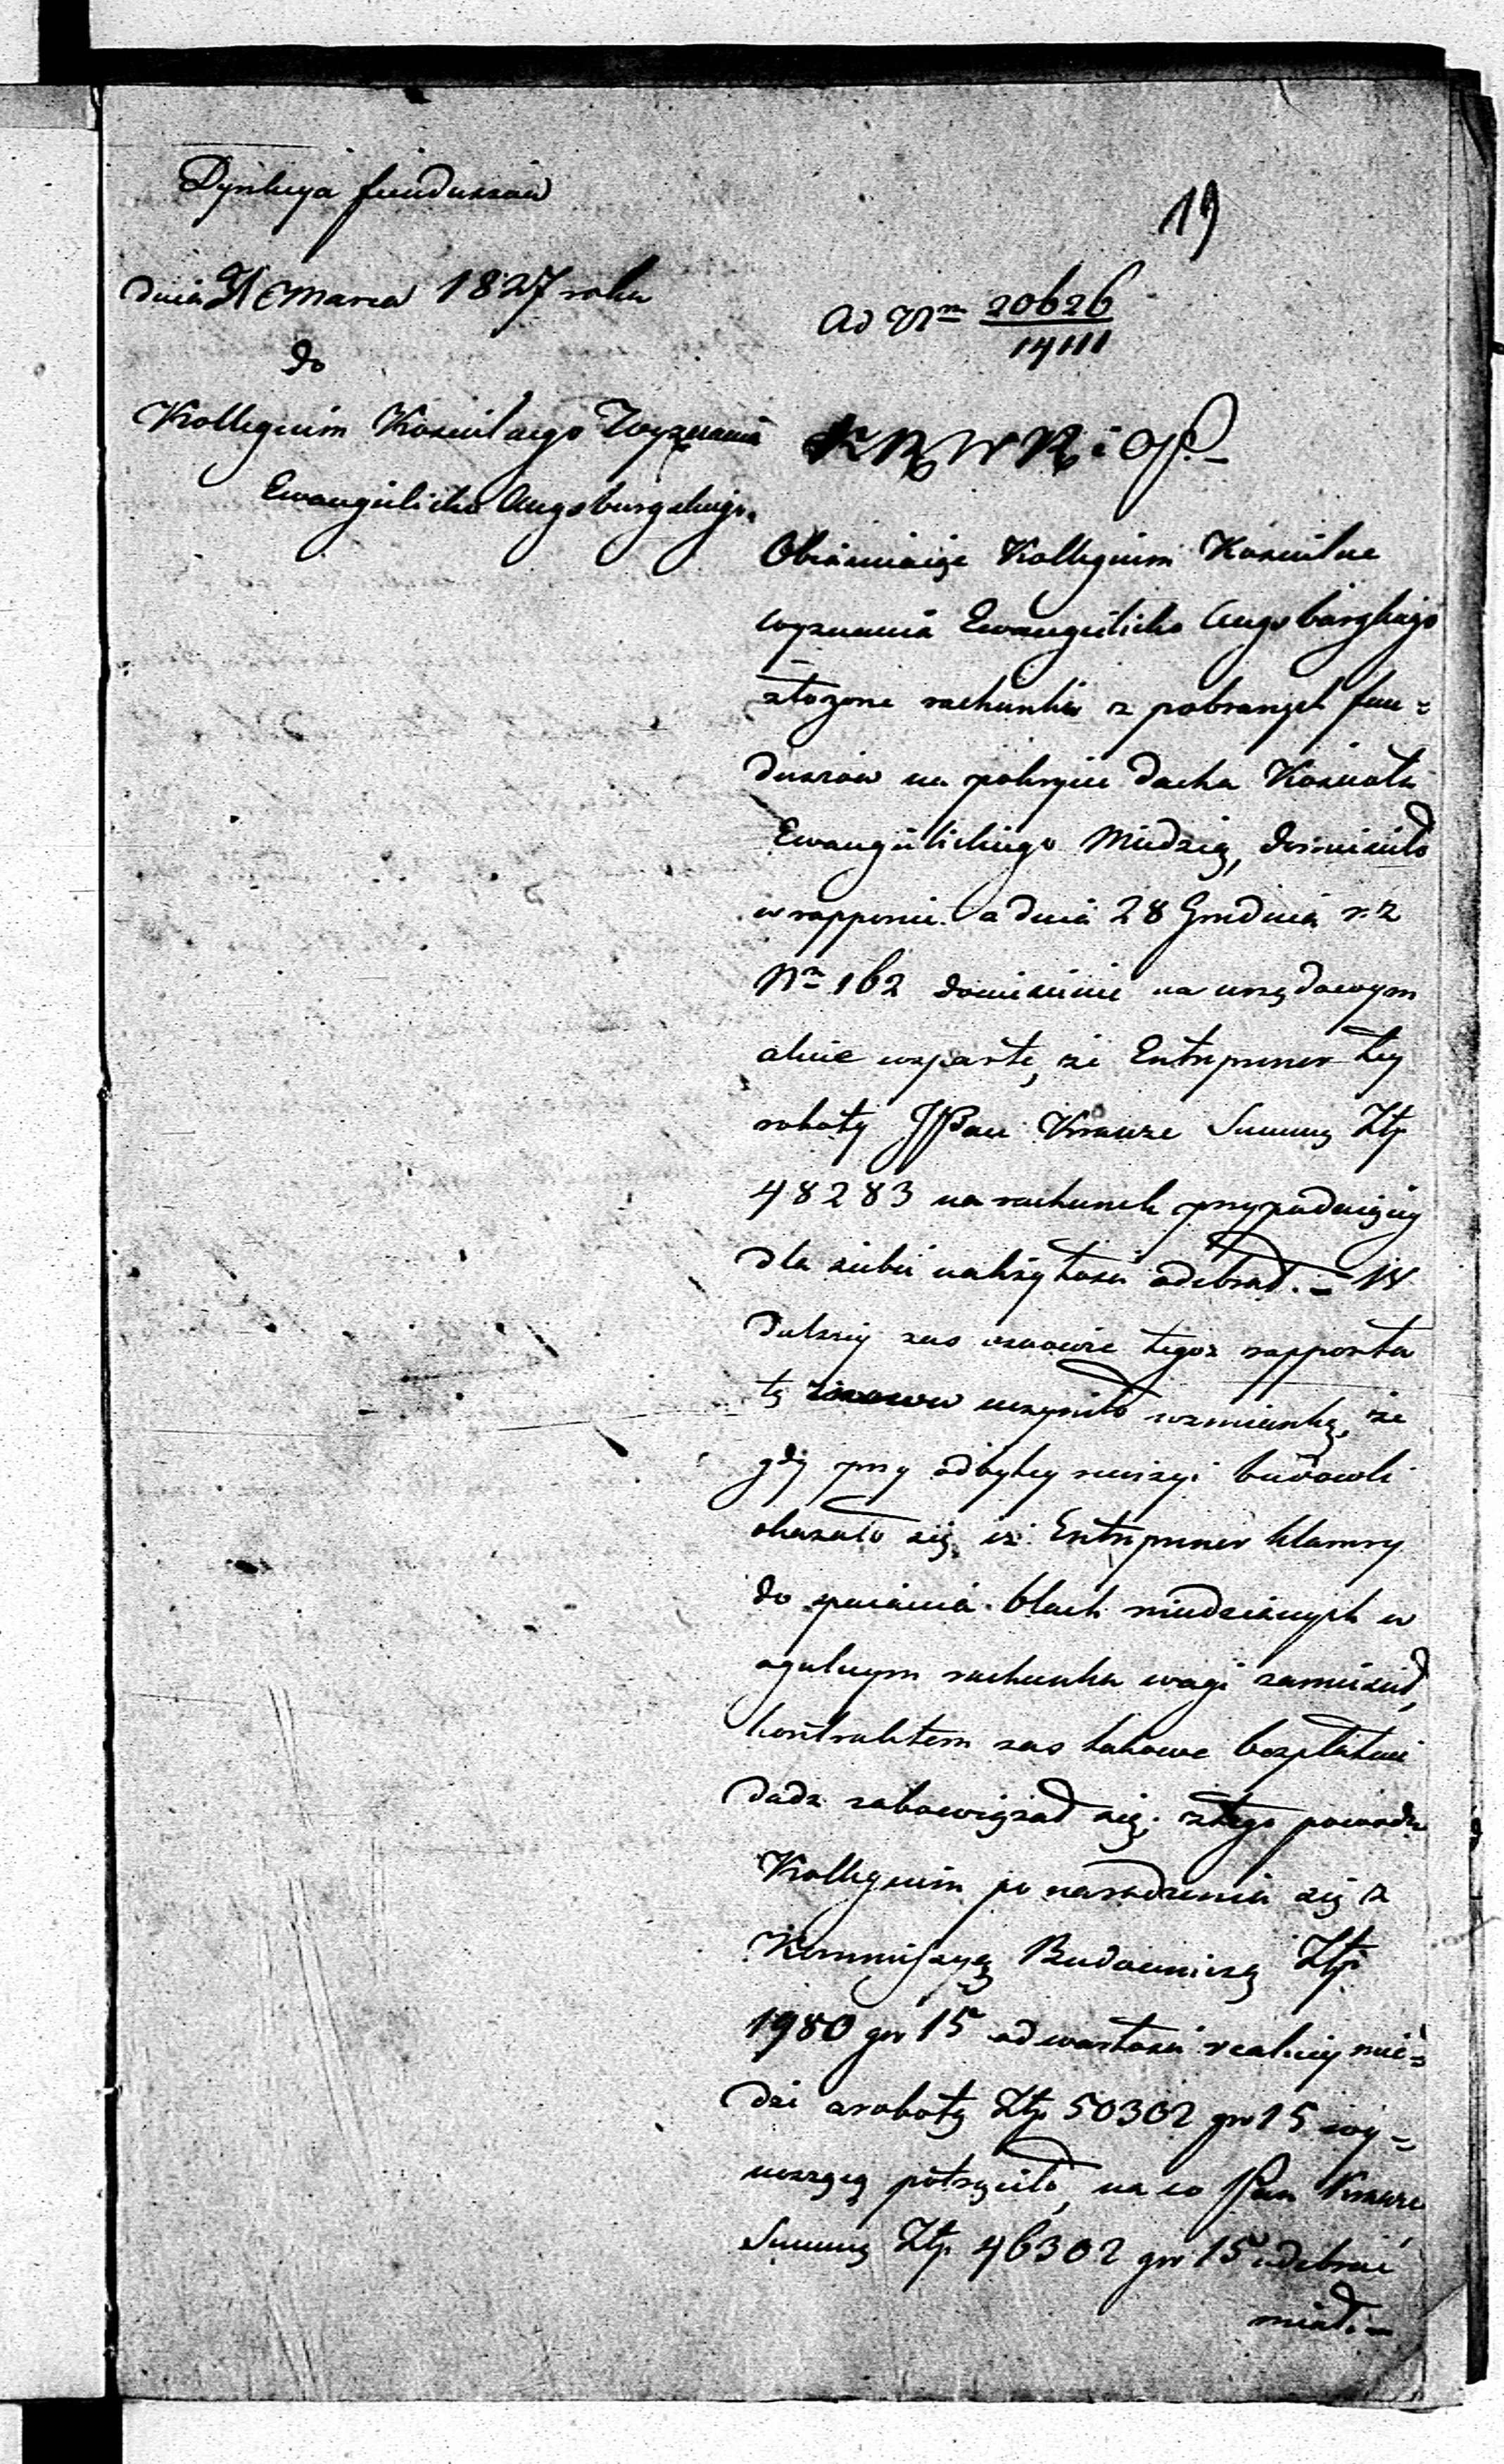 Dyrekcya funduszów
19
dnia 31 Marca 1827 roku
Ad Nrm 20626
14111
do
Kollegium Koscielnego Wyznania
Ewangelicko Augsburgskiego.
K R W R i O P.
Obiasniaiąc Kollegium Koscielne
wyznania Ewangelicko Augsburgskiego
złozone rachunki z pobranych fun=
duszów na pokrycie dachu Koscioła
Ewangelickiego Miedzią, doniosło
w rapporcie z dnia 28 Grudnia r. z
Nrm 162 doniesienie na urzędowym
akcie wsparte, że Entreprener tey
roboty JPan Krauze Summę Złp
48283 na rachunek przypadaiącey
dla siebie należytosci odebrał. — W
dalszey zas osnowie tegoż rapportu
tę uczyniło wzmiankę, że
gdy przy odbytey rewizyi budowli
okazało się, iż Entreprener klamry
do spaiania blach miedzianych w
ogulnym rachunku wagi zamiescił,
kontraktem zas takowe bezpłatnie
dadz zobowiązał się, z tego powodu
Kollegium po naradzeniu się z
Kommissyą Budowniczą Złp
1980 gr 15 od wartosci realney mie=
dzi a roboty Złp 50302 gr 15 wy=
noszącą potrąciło, na co Pan Krauze
Summę Złp 46302 gr 15 odebrać
miał. —